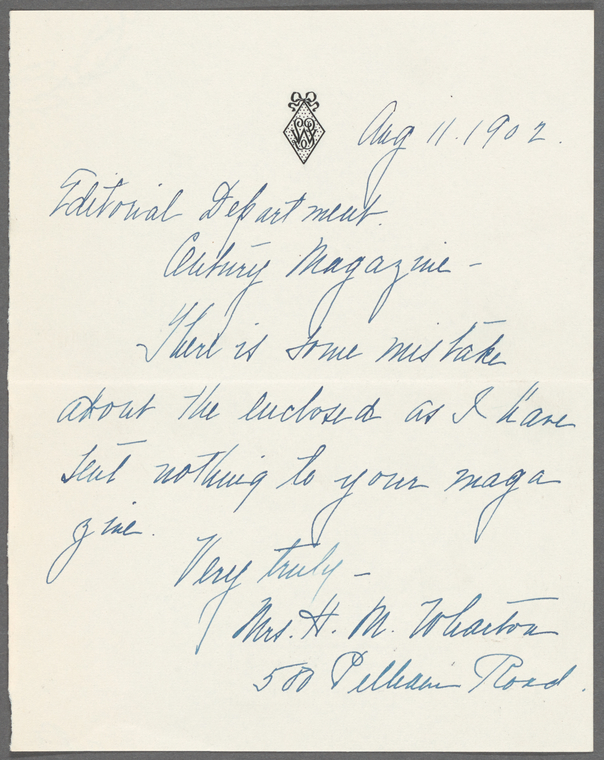 W
Aug 11. 1902.
Editorial Department.
Century Magazine -
There is some mistake
about the enclosed as I have
sent nothing to your maga
zine.
Very truly -
Mrs. H. M. Wharton
580 Pelham Road.